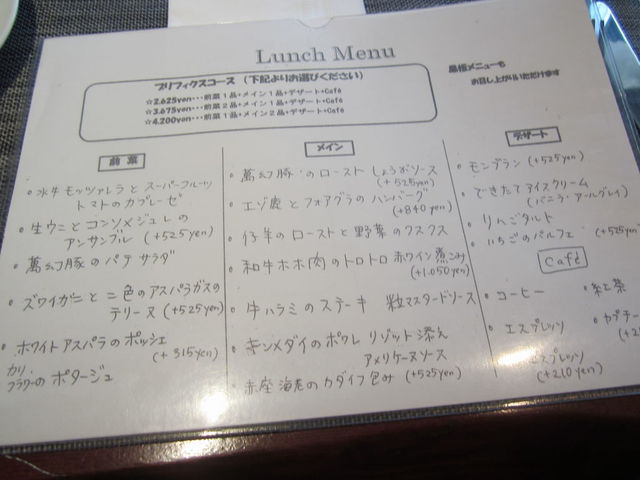 Lunch Menu
プリフィクスコース（下記よりお選びください）
☆2.625yen・・・前菜1品+メイン1品+デザート+Café
☆3.675yen・・・前菜2品+メイン1品+デザート+Café
☆4.200yen・・・前菜1品+メイン2品+デザート+Café
黒板メニューも
お召し上がりいただけます
前菜
・水牛モッツァレラとスーパーフルーツ
トマトのカプレーゼ
・生ウニとコンソメジュレの
アンサンブル (+525yen)
・萬幻豚のパテ サラダ
・ズワイガニと二色のアスパラガスの
テリーヌ (+525yen)
・ホワイトアスパラのポッシェ
(+315yen)
カリ
フラワーのポタージュ
メイン
・萬幻豚のロースト しょうがソース
(+525yen)
・エゾ鹿とフォアグラのハンバーグ
(+840yen)
・仔羊のローストと野菜のクスクス
・和牛ホホ肉のトロトロ赤ワイン煮こみ
(+1.050yen)
・牛ハラミのステーキ 粒マスタードソース
・キンメダイのポワレ リゾット添え
アメリケーヌソース
・赤座海老のカダイフ包み (+525yen)
デザート
・モンブラン (+525yen)
・できたてアイスクリーム
(バニラ・アールグレイ)
・りんごタルト
・いちごのパルフェ (+525yen)
Café
・コーヒー ・紅茶
・エスプレッソ ・カプチー
エスプレッソ
(+210yen)